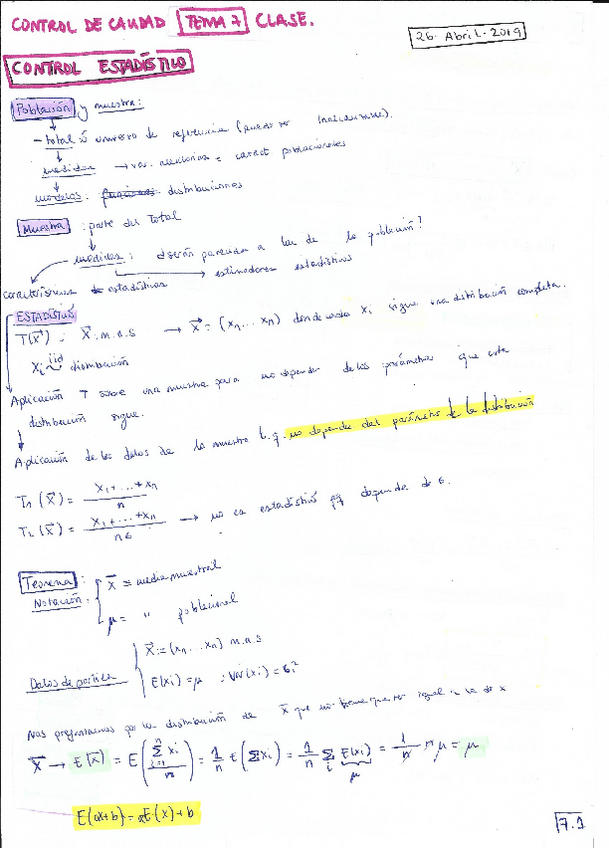 CONTROL DE CALIDAD TEMA 7 CLASE.
26-Abril-2019
CONTROL ESTADÍSTICO
Población y muestra:
- total ó universo de referencia (puede ser
medidas → var. aleatorias = caract poblacionales
modelos: funciones distribuciones
Muestra : parte del total
medidas: ¿serán parecidas a las de la población?
estimadores estadísticos
características de estadísticas
ESTADÍSTICO
T(x⃗) : X⃗ : m.a.s → X⃗ = (x₁ ... xₙ) donde cada xᵢ sigue una distribución completa.
xᵢ iid ~ distribución
Aplicación T sobre una muestra para no depender de los parámetros que esta
distribución sigue.
Aplicación de los datos de la muestra t.q. no depende del parámetro de la distribución
T₁ (X⃗) = (x₁+...+xₙ)/n
T₂ (X⃗) = (x₁+...+xₙ)/(nσ) → no es estadístico pq depende de σ.
Teorema:
Notación: x̄ ≡ media muestral
μ = " poblacional
Datos de partida X⃗ = (x₁ ... xₙ) m.a.s
E(xᵢ) = μ ; Var(xᵢ) = σᵢ²
Nos preguntamos por la distribución de x̄ que no tiene que ser igual a la de x
X̄ → E(x̄) = E(Σⁿᵢ₌₁ xᵢ / n) = 1/n E(Σxᵢ) = 1/n Σᵢ E(xᵢ) = 1/n n μ = μ
μ
E(ax+b) = aE(x)+b
7.1